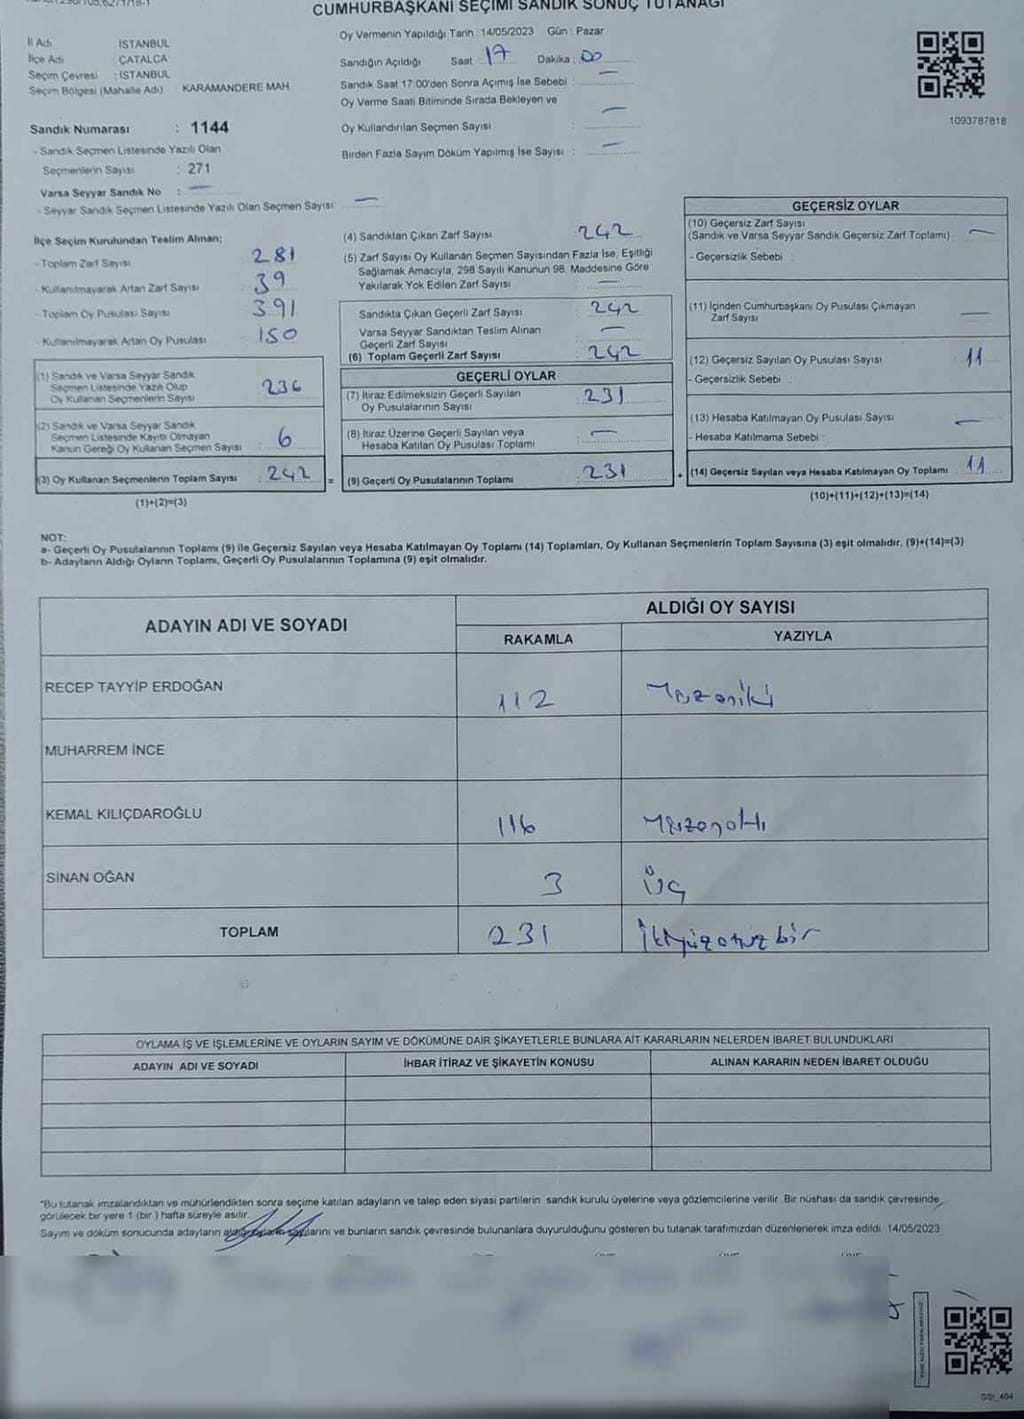 CUMHURBAŞKANI SEÇİMİ SANDIK SONUÇ TUTANAĞI
İl Adı : İSTANBUL
İlçe Adı : ÇATALCA
Seçim Çevresi : İSTANBUL
Seçim Bölgesi (Mahalle Adı) KARAMANDERE MAH.
Sandık Numarası : 1144
- Sandık Seçmen Listesinde Yazılı Olan
Seçmenlerin Sayısı : 271
Varsa Seyyar Sandık No : —
- Seyyar Sandık Seçmen Listesinde Yazılı Olan Seçmen Sayısı : —
Oy Vermenin Yapıldığı Tarih : 14/05/2023 Gün : Pazar
Sandığın Açıldığı Saat : 17 Dakika : 00
Sandık Saat 17:00'den Sonra Açımış İse Sebebi : —
Oy Verme Saati Bitiminde Sırada Bekleyen ve
Oy Kullandırılan Seçmen Sayısı : —
Birden Fazla Sayım Döküm Yapılmış İse Sayısı : —
1093787818
İlçe Seçim Kurulundan Teslim Alınan;
- Toplam Zarf Sayısı 281
- Kullanılmayarak Artan Zarf Sayısı 39
- Toplam Oy Pusulası Sayısı 391
- Kullanılmayarak Artan Oy Pusulası 150
(1) Sandık ve Varsa Seyyar Sandık
Seçmen Listesinde Yazılı Olup
Oy Kullanan Seçmenlerin Sayısı 236
(2) Sandık ve Varsa Seyyar Sandık
Seçmen Listesinde Kayıtlı Olmayan
Kanun Gereği Oy Kullanan Seçmen Sayısı 6
(3) Oy Kullanan Seçmenlerin Toplam Sayısı : 242 =
(1)+(2)=(3)
(4) Sandıktan Çıkan Zarf Sayısı 242
(5) Zarf Sayısı Oy Kullanan Seçmen Sayısından Fazla İse, Eşitliği
Sağlamak Amacıyla, 298 Sayılı Kanunun 98. Maddesine Göre
Yakılarak Yok Edilen Zarf Sayısı : —
Sandıkta Çıkan Geçerli Zarf Sayısı 242
Varsa Seyyar Sandıktan Teslim Alınan
Geçerli Zarf Sayısı —
(6) Toplam Geçerli Zarf Sayısı 242
GEÇERLİ OYLAR
(7) İtiraz Edilmeksizin Geçerli Sayılan
Oy Pusulalarının Sayısı : 231
(8) İtiraz Üzerine Geçerli Sayılan veya
Hesaba Katılan Oy Pusulası Toplamı : —
(9) Geçerli Oy Pusulalarının Toplamı : 231 +
GEÇERSİZ OYLAR
(10) Geçersiz Zarf Sayısı
(Sandık ve Varsa Seyyar Sandık Geçersiz Zarf Toplamı) : —
- Geçersizlik Sebebi :
(11) İçinden Cumhurbaşkanı Oy Pusulası Çıkmayan
Zarf Sayısı —
(12) Geçersiz Sayılan Oy Pusulası Sayısı 11
- Geçersizlik Sebebi :
(13) Hesaba Katılmayan Oy Pusulası Sayısı —
- Hesaba Katılmama Sebebi :
(14) Geçersiz Sayılan veya Hesaba Katılmayan Oy Toplamı : 11
(10)+(11)+(12)+(13)=(14)
NOT:
a- Geçerli Oy Pusulalarının Toplamı (9) ile Geçersiz Sayılan veya Hesaba Katılmayan Oy Toplamı (14) Toplamları, Oy Kullanan Seçmenlerin Toplam Sayısına (3) eşit olmalıdır. (9)+(14)=(3)
b- Adayların Aldığı Oyların Toplamı, Geçerli Oy Pusulalarının Toplamına (9) eşit olmalıdır.
ADAYIN ADI VE SOYADI ALDIĞI OY SAYISI
RAKAMLA YAZIYLA
RECEP TAYYİP ERDOĞAN 112 Yüzoniki
MUHARREM İNCE
KEMAL KILIÇDAROĞLU 116 Yüzonaltı
SİNAN OĞAN 3 üç
TOPLAM 231 İkiyüzotuzbir
OYLAMA İŞ VE İŞLEMLERİNE VE OYLARIN SAYIM VE DÖKÜMÜNE DAİR ŞİKAYETLERLE BUNLARA AİT KARARLARIN NELERDEN İBARET BULUNDUKLARI
ADAYIN ADI VE SOYADI İHBAR İTİRAZ VE ŞİKAYETİN KONUSU ALINAN KARARIN NEDEN İBARET OLDUĞU
*Bu tutanak imzalandıktan ve mühürlendikten sonra seçime katılan adayların ve talep eden siyasi partilerin sandık kurulu üyelerine veya gözlemcilerine verilir. Bir nüshası da sandık çevresinde
görülecek bir yere 1 (bir) hafta süreyle asılır.
Sayım ve döküm sonucunda adayların aldığı oyların sayılarını ve bunların sandık çevresinde bulunanlara duyurulduğunu gösteren bu tutanak tarafımızdan düzenlenerek imza edildi. 14/05/2023